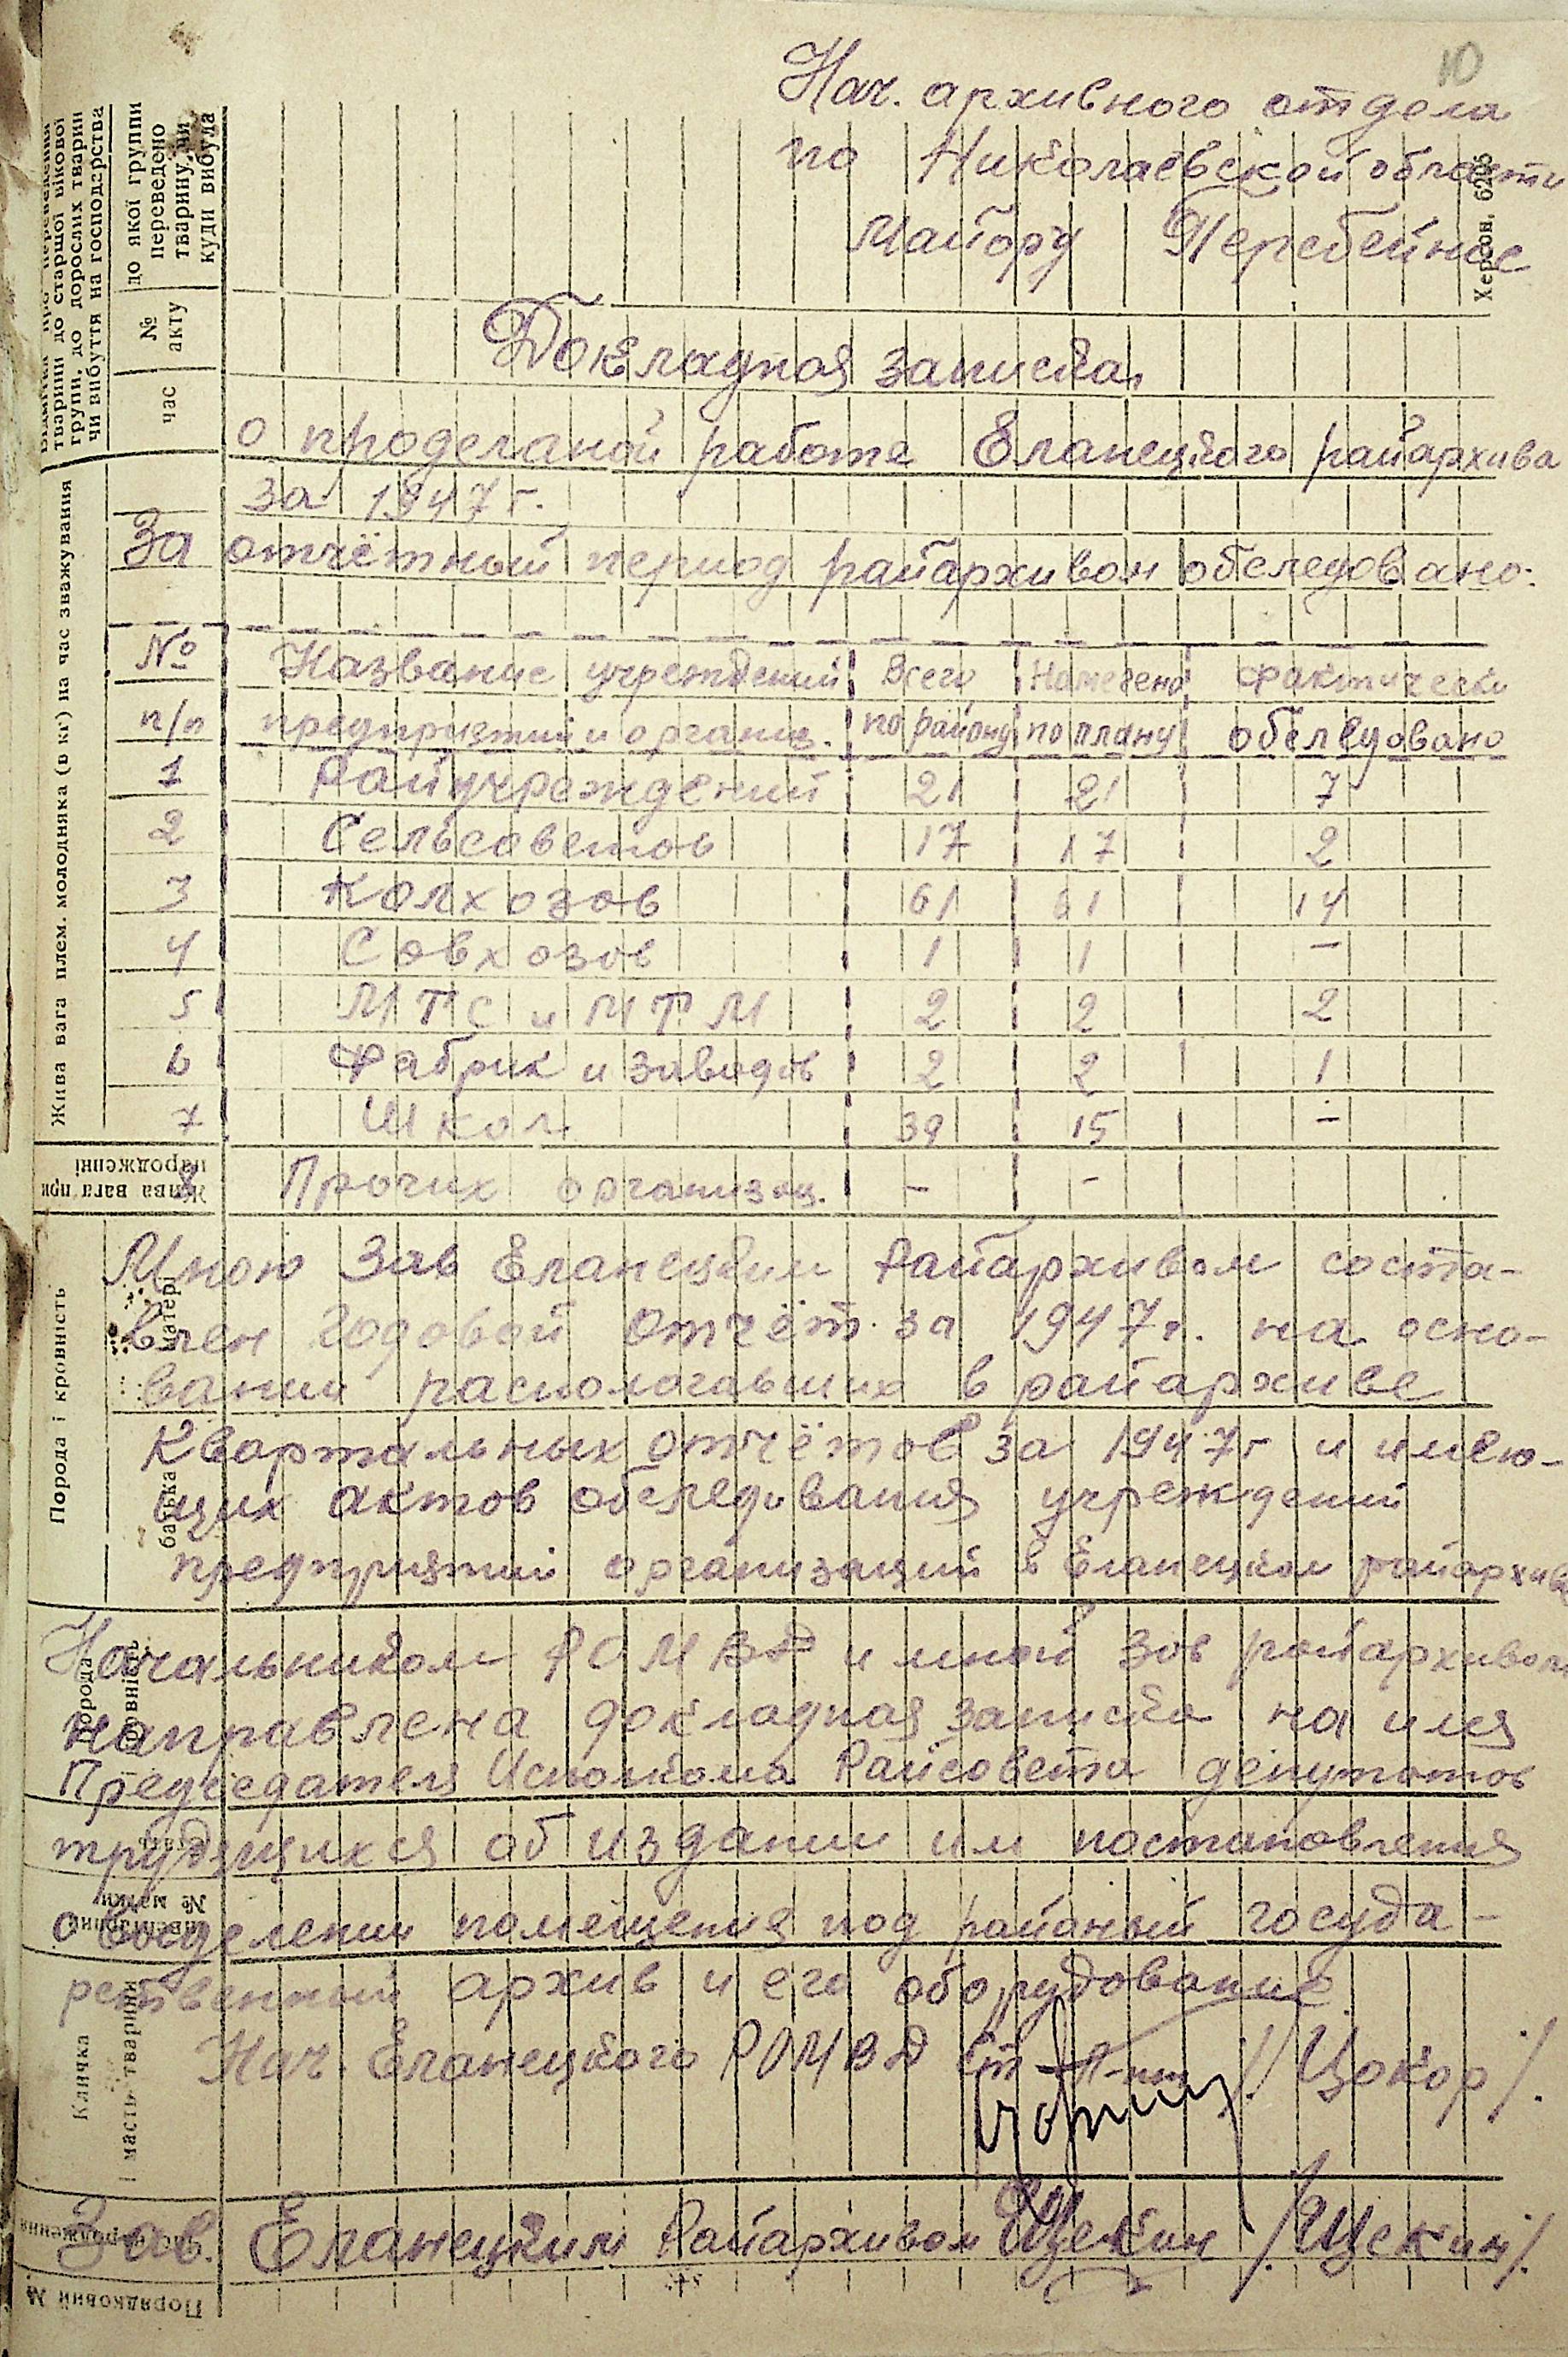 10
Нач. архивного отдела
по Николаевской области
Майору Перебейнос
Докладная записка
о проделаной работе Еланецкого райархива
за 1947 г.
За отчётный период райархивом обследовано:
№ Название учреждений Всего Намечено Фактически
п/п предприятий и организ. по району по плану обследовано
1 Райучреждений 21 21 7
2 Сельсоветов 17 17 2
3 Колхозов 61 61 14
4 Совхозов 1 1 –
5 МТС и МТМ 2 2 2
6 Фабрик и заводов 2 2 1
7 Школ 39 15 –
8 Прочих организац. – –
Мною Зав Еланецким Райархивом соста-
влен годовой отчёт за 1947 г. на осно-
вании распологавших в райархиве
Квартальных отчётов за 1947 г и имею-
щих актов обследивания учреждений
предприятий организаций в Еланецком райархиве
Начальником РОМВД и мной Зав райархивом
направлена докладная записка на имя
Председателя Исполкома Райсовета депутатов
трудящихся об издании им постановления
о выделении помещения под районый госуда-
рственный архив и его оборудование
Нач. Еланецкого РОМВД Ст. Л-нт /Цокор/.
Зав. Еланецким Райархивом Щекин /Щекин/.
тварини до старшої вікової
групи, до дорослих тварин
чи вибуття на господарства
до якої группи
переведено
тварину, чи
куди вибула
№
акту
час
Жива вага плем. молодняка (в кг) на час зважування
Жива вага при
народженні
Порода і кровність
матері
батька
Порода
кровність
№ матки
Кличка
і масть тварини
Порядковий №
Херсон,